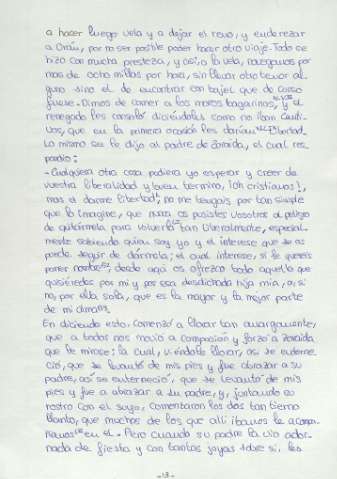 a hacer luego vela y a dejar el remo, y enderezar
a Orán, por no ser posible poder hacer otro viaje. Todo se
hizo con mucha presteza, y así, a la vela, navegamos por
más de ocho millas por hora, sin llevar otro temor al-
guno sino el de encontrar con bajel que de corso
fuese. Dimos de comer a los moros bagarinos, y el
renegado les consoló diciéndoles como no iban cauti-
vos, que en la primera ocasión les darían libertad.
Lo mismo se le dijo al padre de Zoraida, el cual res-
pondió:
- Cualquiera otra cosa pudiera yo esperar y creer de
vuestra liberalidad y buen término, ¡oh cristianos!,
mas el darme libertad, no me tengáis por tan simple
que lo imagine, que nunca os pusistes vosotros al peligro
de quitármela para volverla tan liberalmente, especial-
mente sabiendo quien soy yo y el interese que se os
puede seguir de dármela; el cual interese, si le queréis
poner nombre, desde aquí os ofrezco todo aquello que
quisiéredes por mí y por esa desdichada hija mía, o si
no, por ella sola, que es la mayor y la mejor parte
de mi alma.
En diciendo esto, comenzó a llorar tan amargamente,
que a todos nos movió a compasión y forzó a Zoraida
que le mirase; la cual, viéndole llorar, así se enterne-
ció, que se levantó de mis pies y fue abrazar a su
padre, así se enterneció, que se levantó de mis
pies y fue a abrazar a su padre, y, juntando su
rostro con el suyo, comenzaron los dos tan tierno
llanto, que muchos de los que allí íbamos le acompa-
ñamos en él. Pero cuando su padre la vio ador-
nada de fiesta y con tantas joyas sobre sí, les
-13-